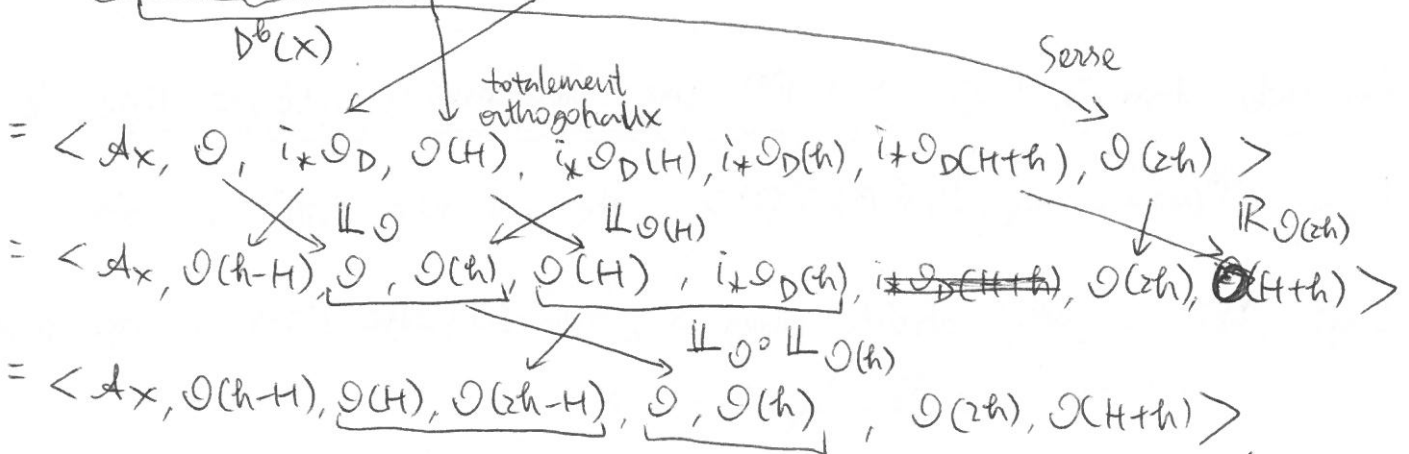 D^b(X)
Serre
totalement
orthogonaux
= < 𝒜_X, 𝒪, i_*𝒪_D, 𝒪(H), i_*𝒪_D(H), i_*𝒪_D(h), i_*𝒪_D(H+h), 𝒪(2h) >
𝕃_𝒪 𝕃_𝒪(H) ℝ_𝒪(2h)
= < 𝒜_X, 𝒪(h-H), 𝒪, 𝒪(h), 𝒪(H), i_*𝒪_D(h), i_*𝒪_D(H+h), 𝒪(2h), 𝒪(H+h) >
𝕃_𝒪 ∘ 𝕃_𝒪(h)
= < 𝒜_X, 𝒪(h-H), 𝒪(H), 𝒪(2h-H), 𝒪, 𝒪(h), 𝒪(2h), 𝒪(H+h) >